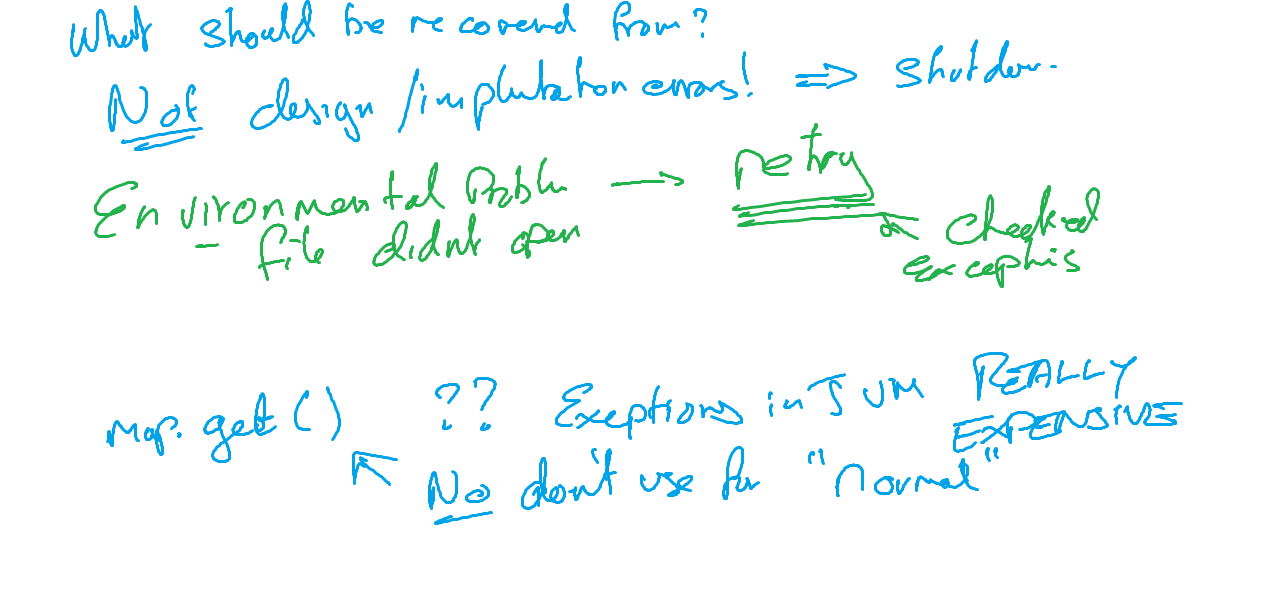 What should be recovered from?
Not design/implutation errors! ⇒ shutdow.
Environmental Problm → retry
- file didnt open
checked
exceptions
Map.get() ?? Exeptions in JVM REALLY
EXPENSIVE
No don't use for "normal"